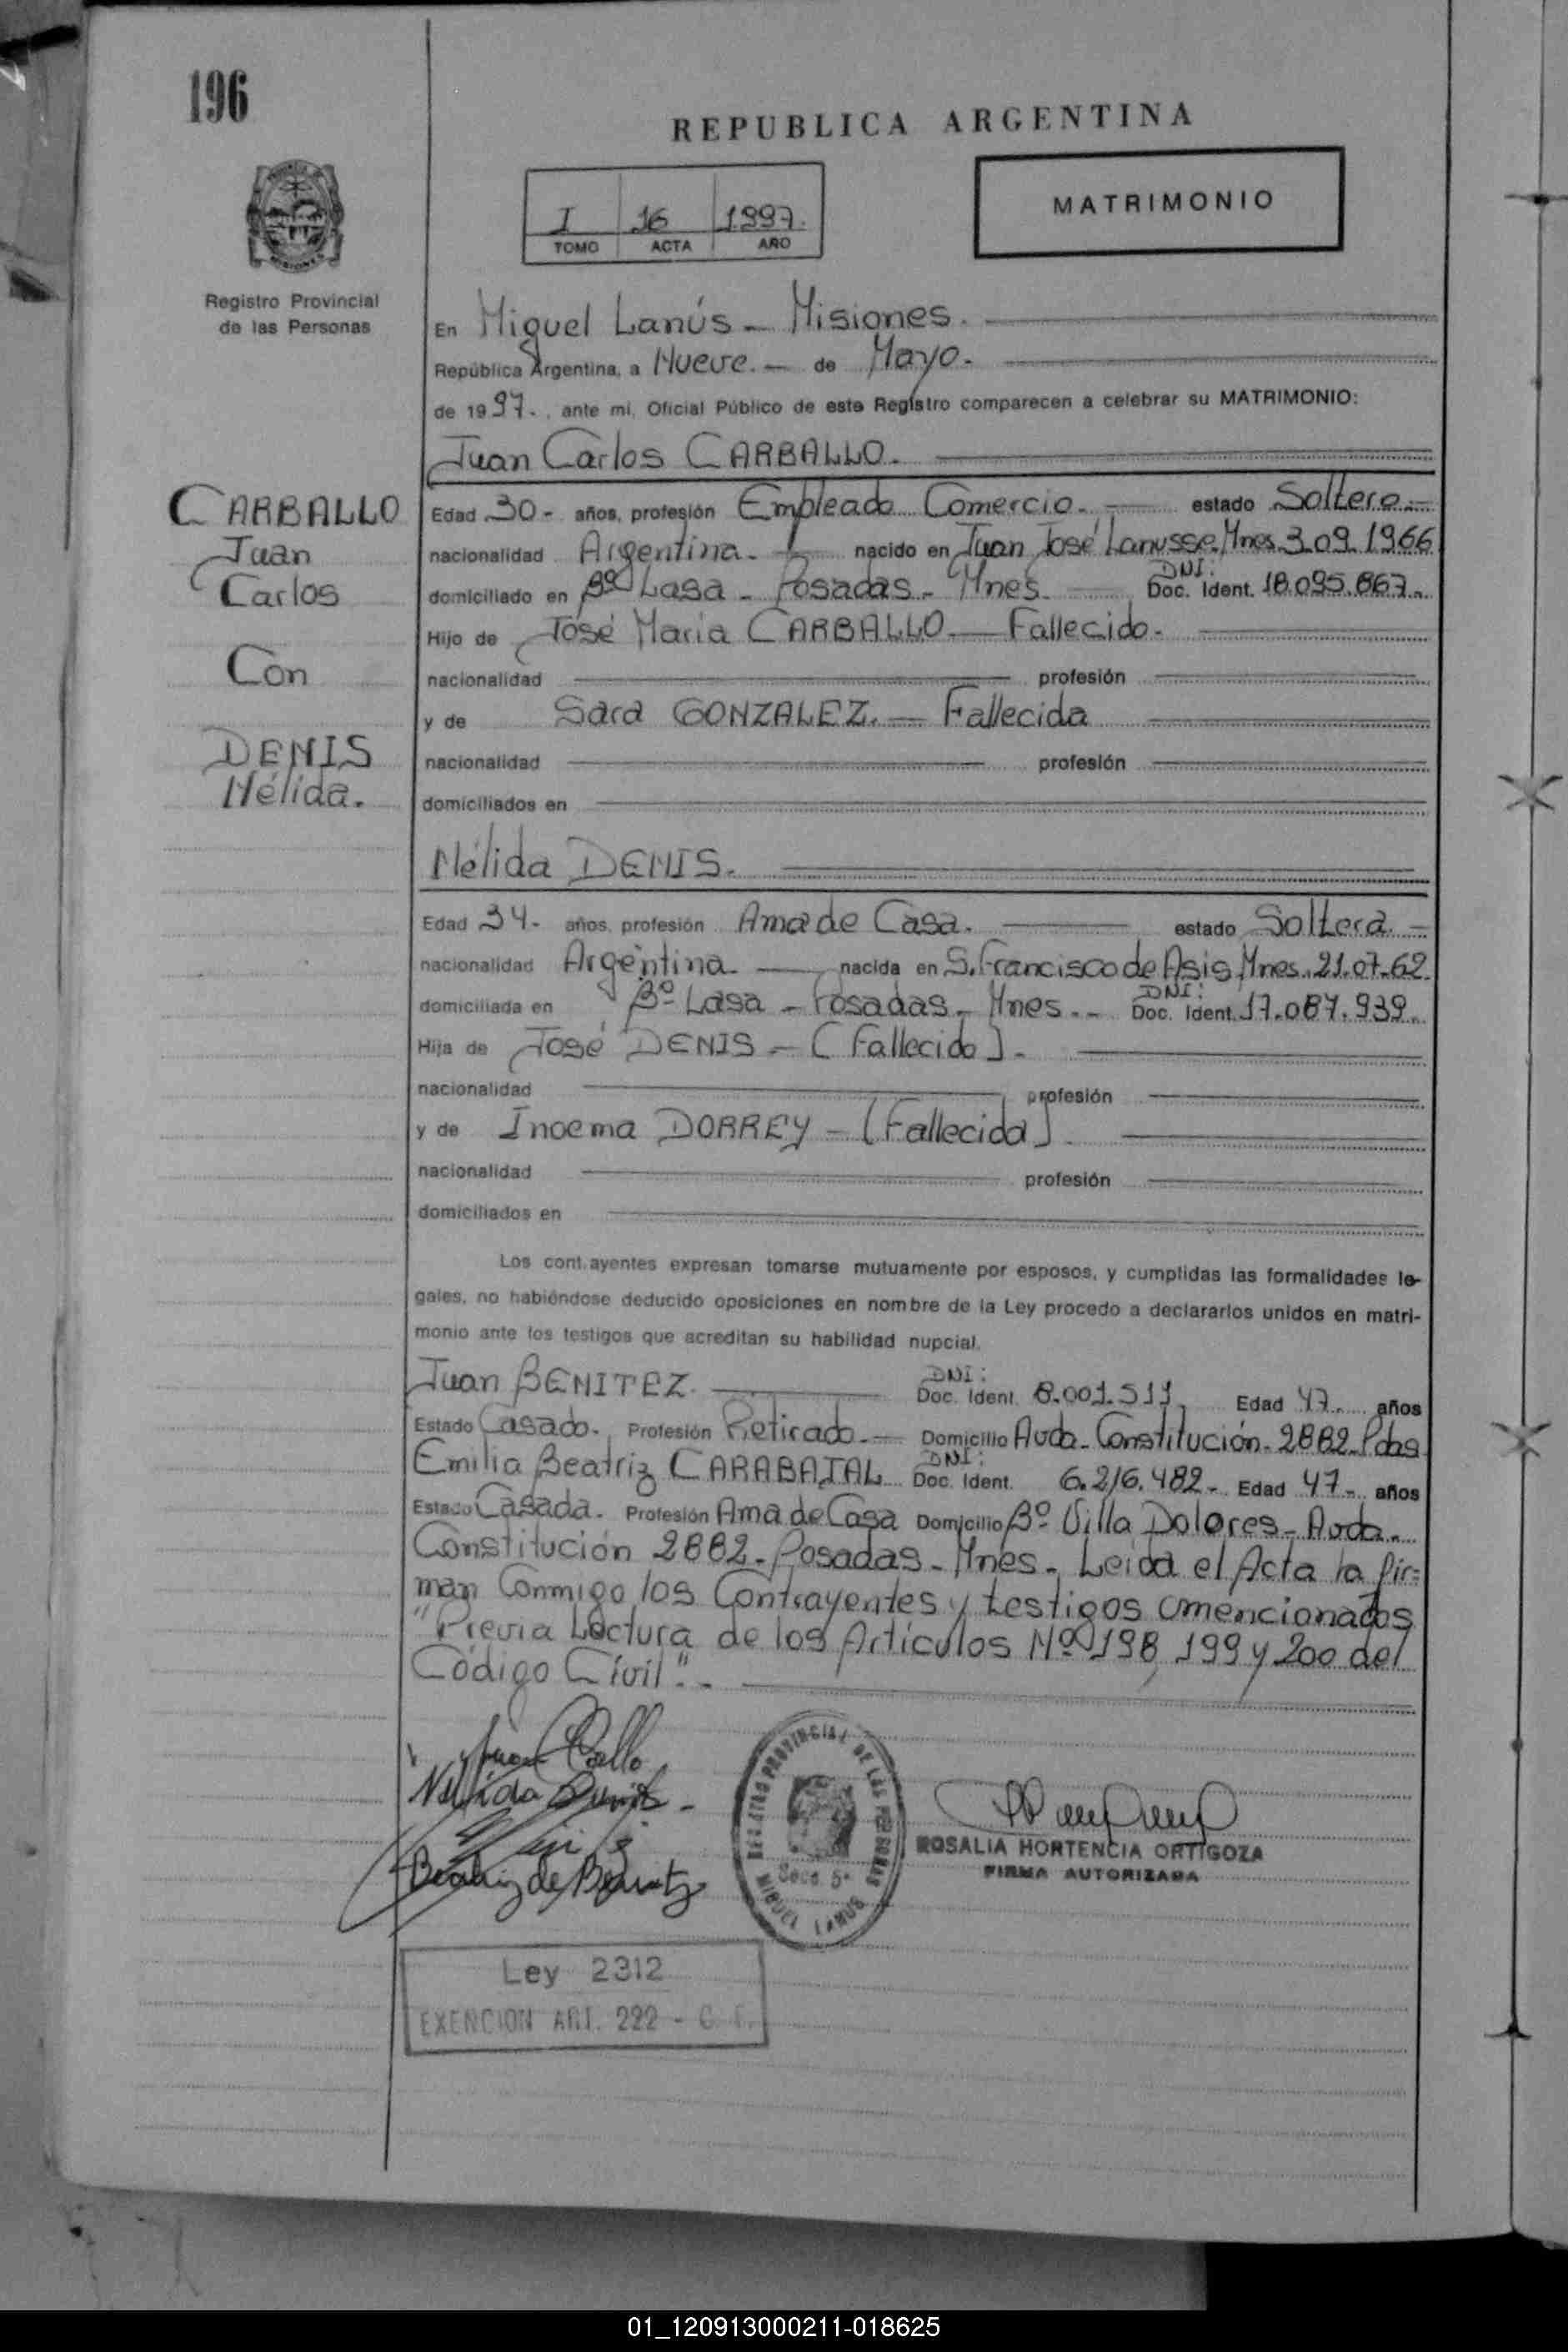 196
REPUBLICA ARGENTINA
I 16 1997.
TOMO ACTA AÑO
MATRIMONIO
Registro Provincial
de las Personas
En Miguel Lanús - Misiones.
República Argentina, a Nueve. - de Mayo.
de 1997. , ante mi, Oficial Público de este Registro comparecen a celebrar su MATRIMONIO:
Juan Carlos CARBALLO.
CARBALLO
Juan
Carlos
Con
DENIS
Nélida.
Edad 30 - años, profesión Empleado Comercio. - estado Soltero -
nacionalidad Argentina. - nacido en Juan José Lanusse. Mnes. 3.09.1966
domiciliado en Bº Lasa - Posadas - Mnes. DNI: Doc. Ident. 18.095.867.
Hijo de José Maria CARBALLO - Fallecido.
nacionalidad profesión
y de Sara GONZALEZ. - Fallecida
nacionalidad profesión
domiciliados en
Nélida DENIS.
Edad 34 - años, profesión Ama de Casa. estado Soltera. -
nacionalidad Argentina - nacida en S. Francisco de Asis, Mnes. 21.07.62.
domiciliada en Bº Lasa - Posadas - Mnes. - DNI: Doc. Ident. 17.087.939.
Hija de José DENIS - (Fallecido).
nacionalidad profesión
y de Inoema DORREY - (Fallecida)
nacionalidad profesión
domiciliados en
Los cont.ayentes expresan tomarse mutuamente por esposos, y cumplidas las formalidades le-
gales, no habiéndose deducido oposiciones en nombre de la Ley procedo a declararlos unidos en matri-
monio ante los testigos que acreditan su habilidad nupcial.
Juan BENITEZ. DNI: Doc. Ident. 8.001.511, Edad 47. años
Estado Casado. Profesión Retirado. - Domicilio Avda. Constitución - 2882 - Pdas
Emilia Beatriz CARABAJAL DNI: Doc. Ident. 6.216.482 - Edad 47 - años
Estado Casada. Profesión Ama de Casa Domicilio Bº Villa Dolores - Avda.
Constitución 2882 - Posadas - Mnes - Leida el Acta la fir=
man Conmigo los Contrayentes y testigos mencionados
"Previa Lectura de los Artículos Nº 198, 199 y 200 del
Código Civil". -
Nélida Denis -
Beatriz de Benitez
REGISTRO PROVINCIAL DE LAS PERSONAS
Secc. 5ª
MIGUEL LANUS
ROSALIA HORTENCIA ORTIGOZA
FIRMA AUTORIZADA
Ley 2312
EXENCION ART. 222 - C. F.
01_120913000211-018625